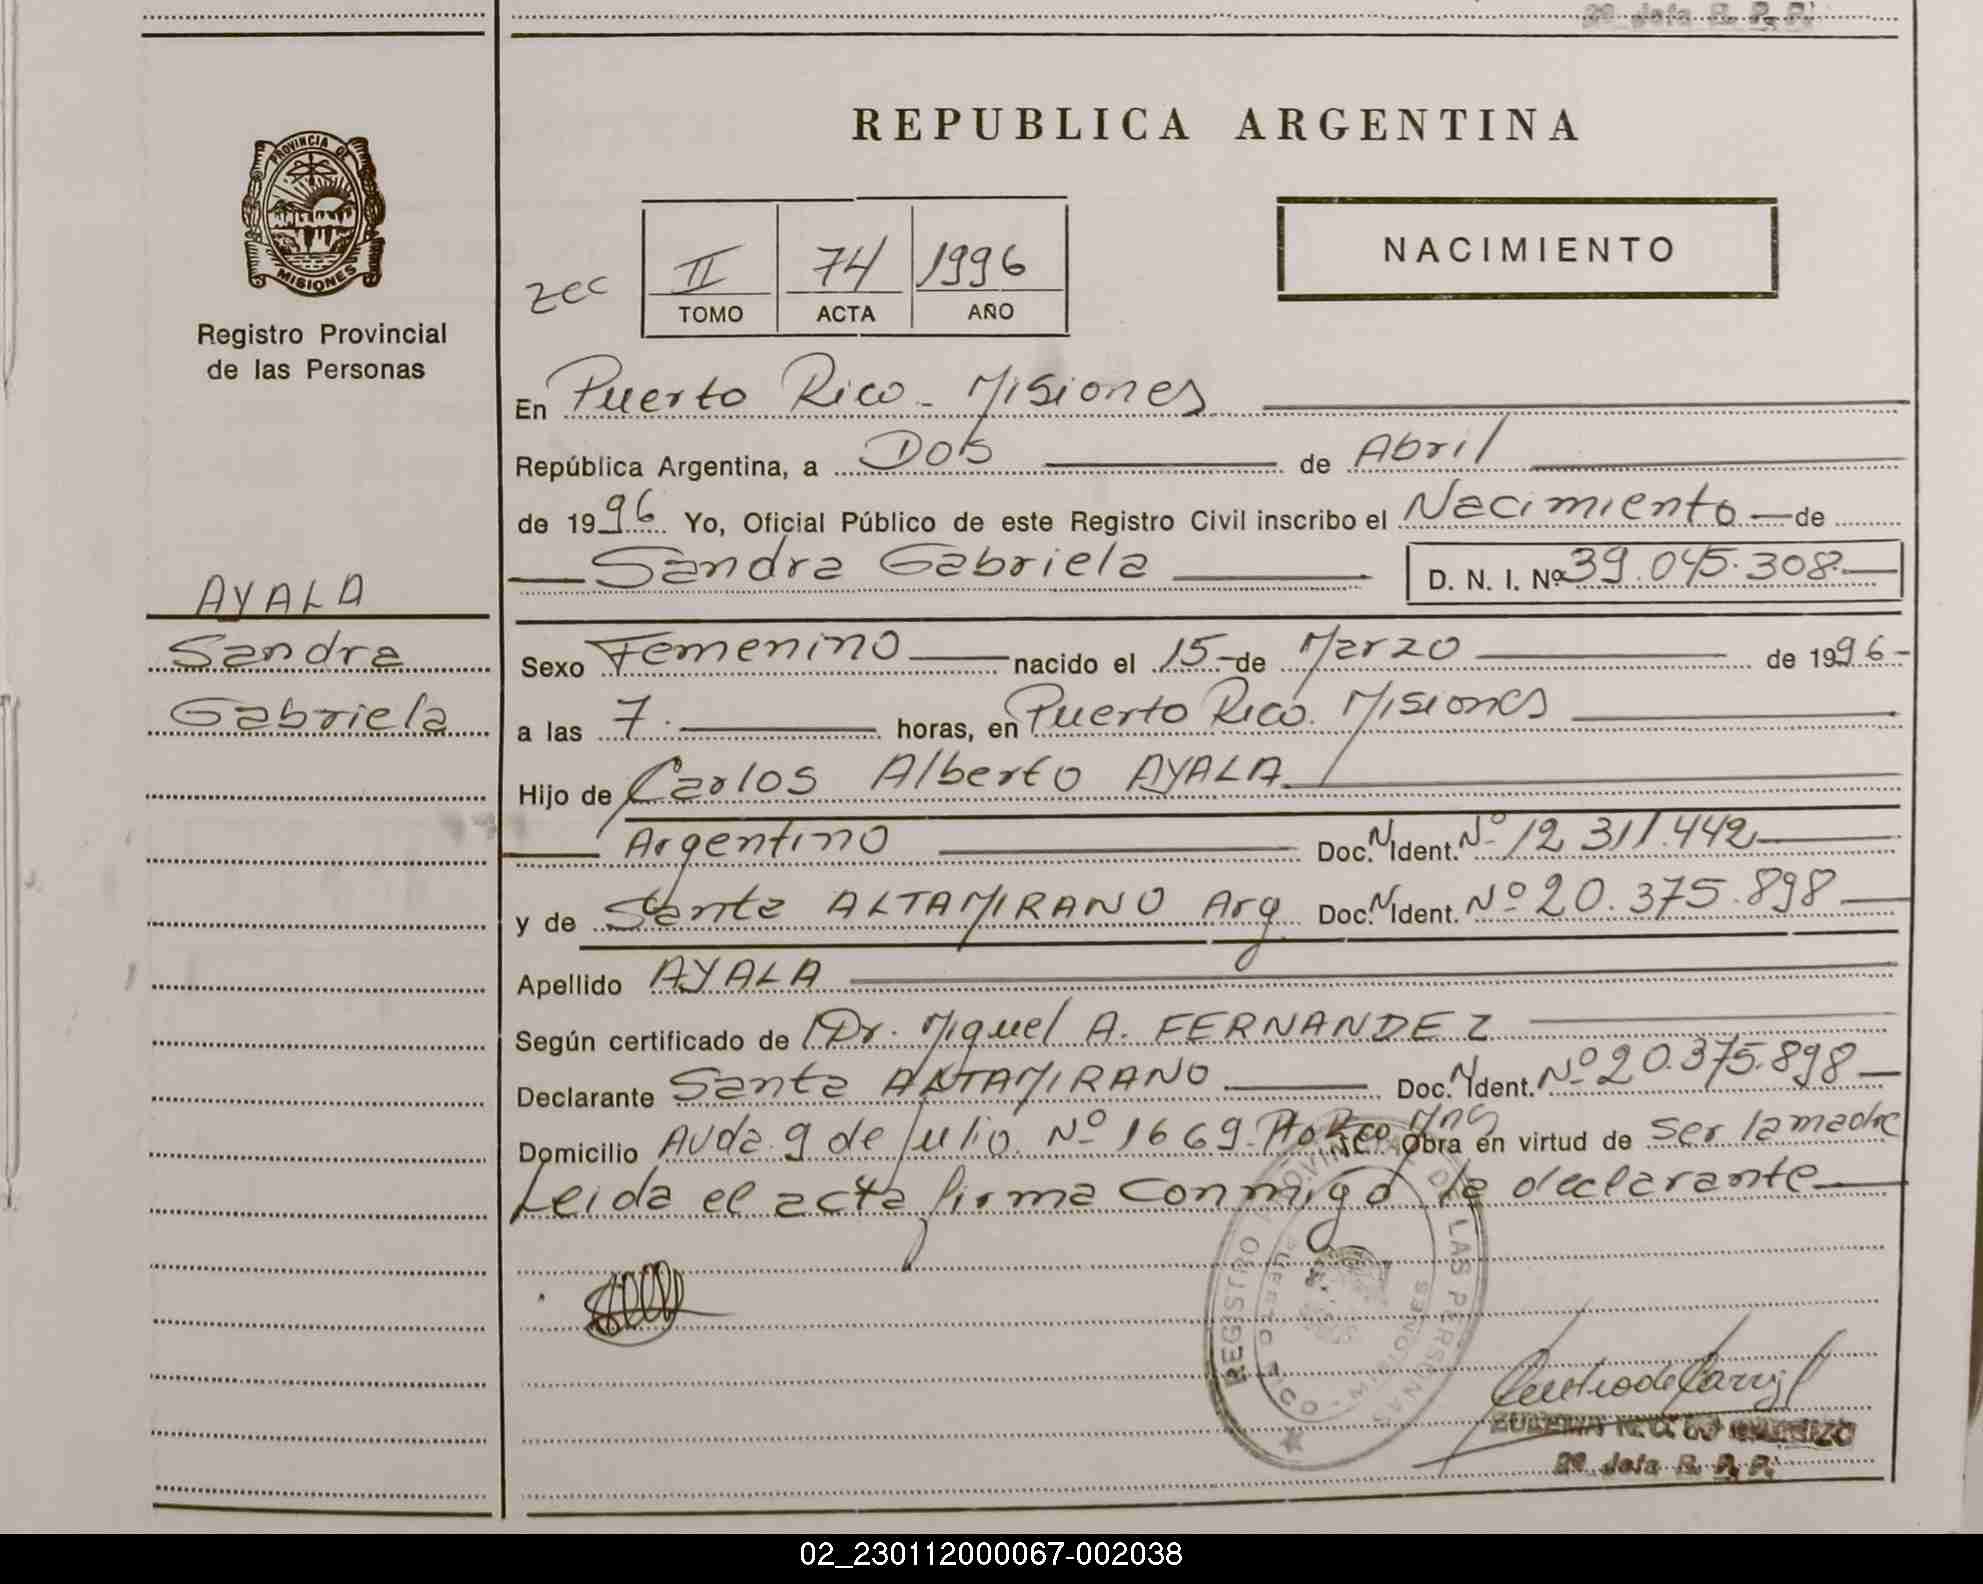 2º Jefa R. P. P.
PROVINCIA DE
MISIONES
Registro Provincial
de las Personas
REPUBLICA ARGENTINA
II 74 1996
TOMO ACTA AÑO
NACIMIENTO
En Puerto Rico - Misiones
República Argentina, a Dos de Abril
de 1996 Yo, Oficial Público de este Registro Civil inscribo el Nacimiento de
Sandra Gabriela D. N. I. Nº 39.045.308
AYALA
Sandra
Gabriela
Sexo Femenino nacido el 15 de Marzo de 1996
a las 7. horas, en Puerto Rico. Misiones
Hijo de Carlos Alberto AYALA
Argentino Doc. N Ident. Nº 12 311.442
y de Santa ALTAMIRANO Arg Doc. N Ident. Nº 20.375.898
Apellido AYALA
Según certificado de Dr. Miguel A. FERNANDEZ
Declarante Santa ALTAMIRANO Doc. N Ident. Nº 20.375.898
Domicilio Avda. 9 de Julio Nº 1669. Pto Rco Mns Obra en virtud de ser la madre
Leida el acta firma conmigo la declarante
REGISTRO PROVINCIAL DE LAS PERSONAS
PUERTO RICO - MISIONES
2º Jefa R. P. P.
02_230112000067-002038